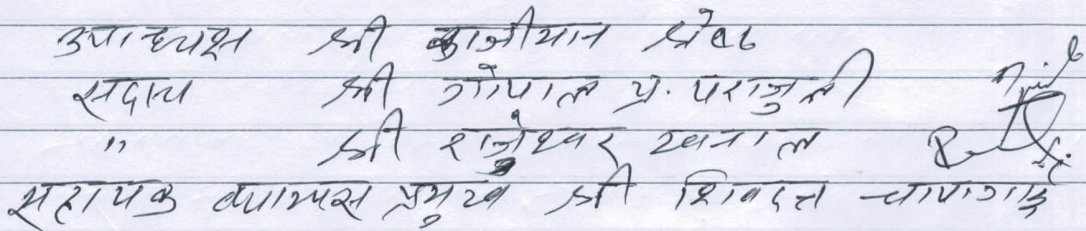 उपाध्यक्ष श्री काजीमान श्रेष्ठ
सदस्य श्री गोपाल प्र. पराजुली
" श्री राजेश्वर खनाल
सहायक क्याम्पस प्रमुख श्री शिवदत्त चापागाई